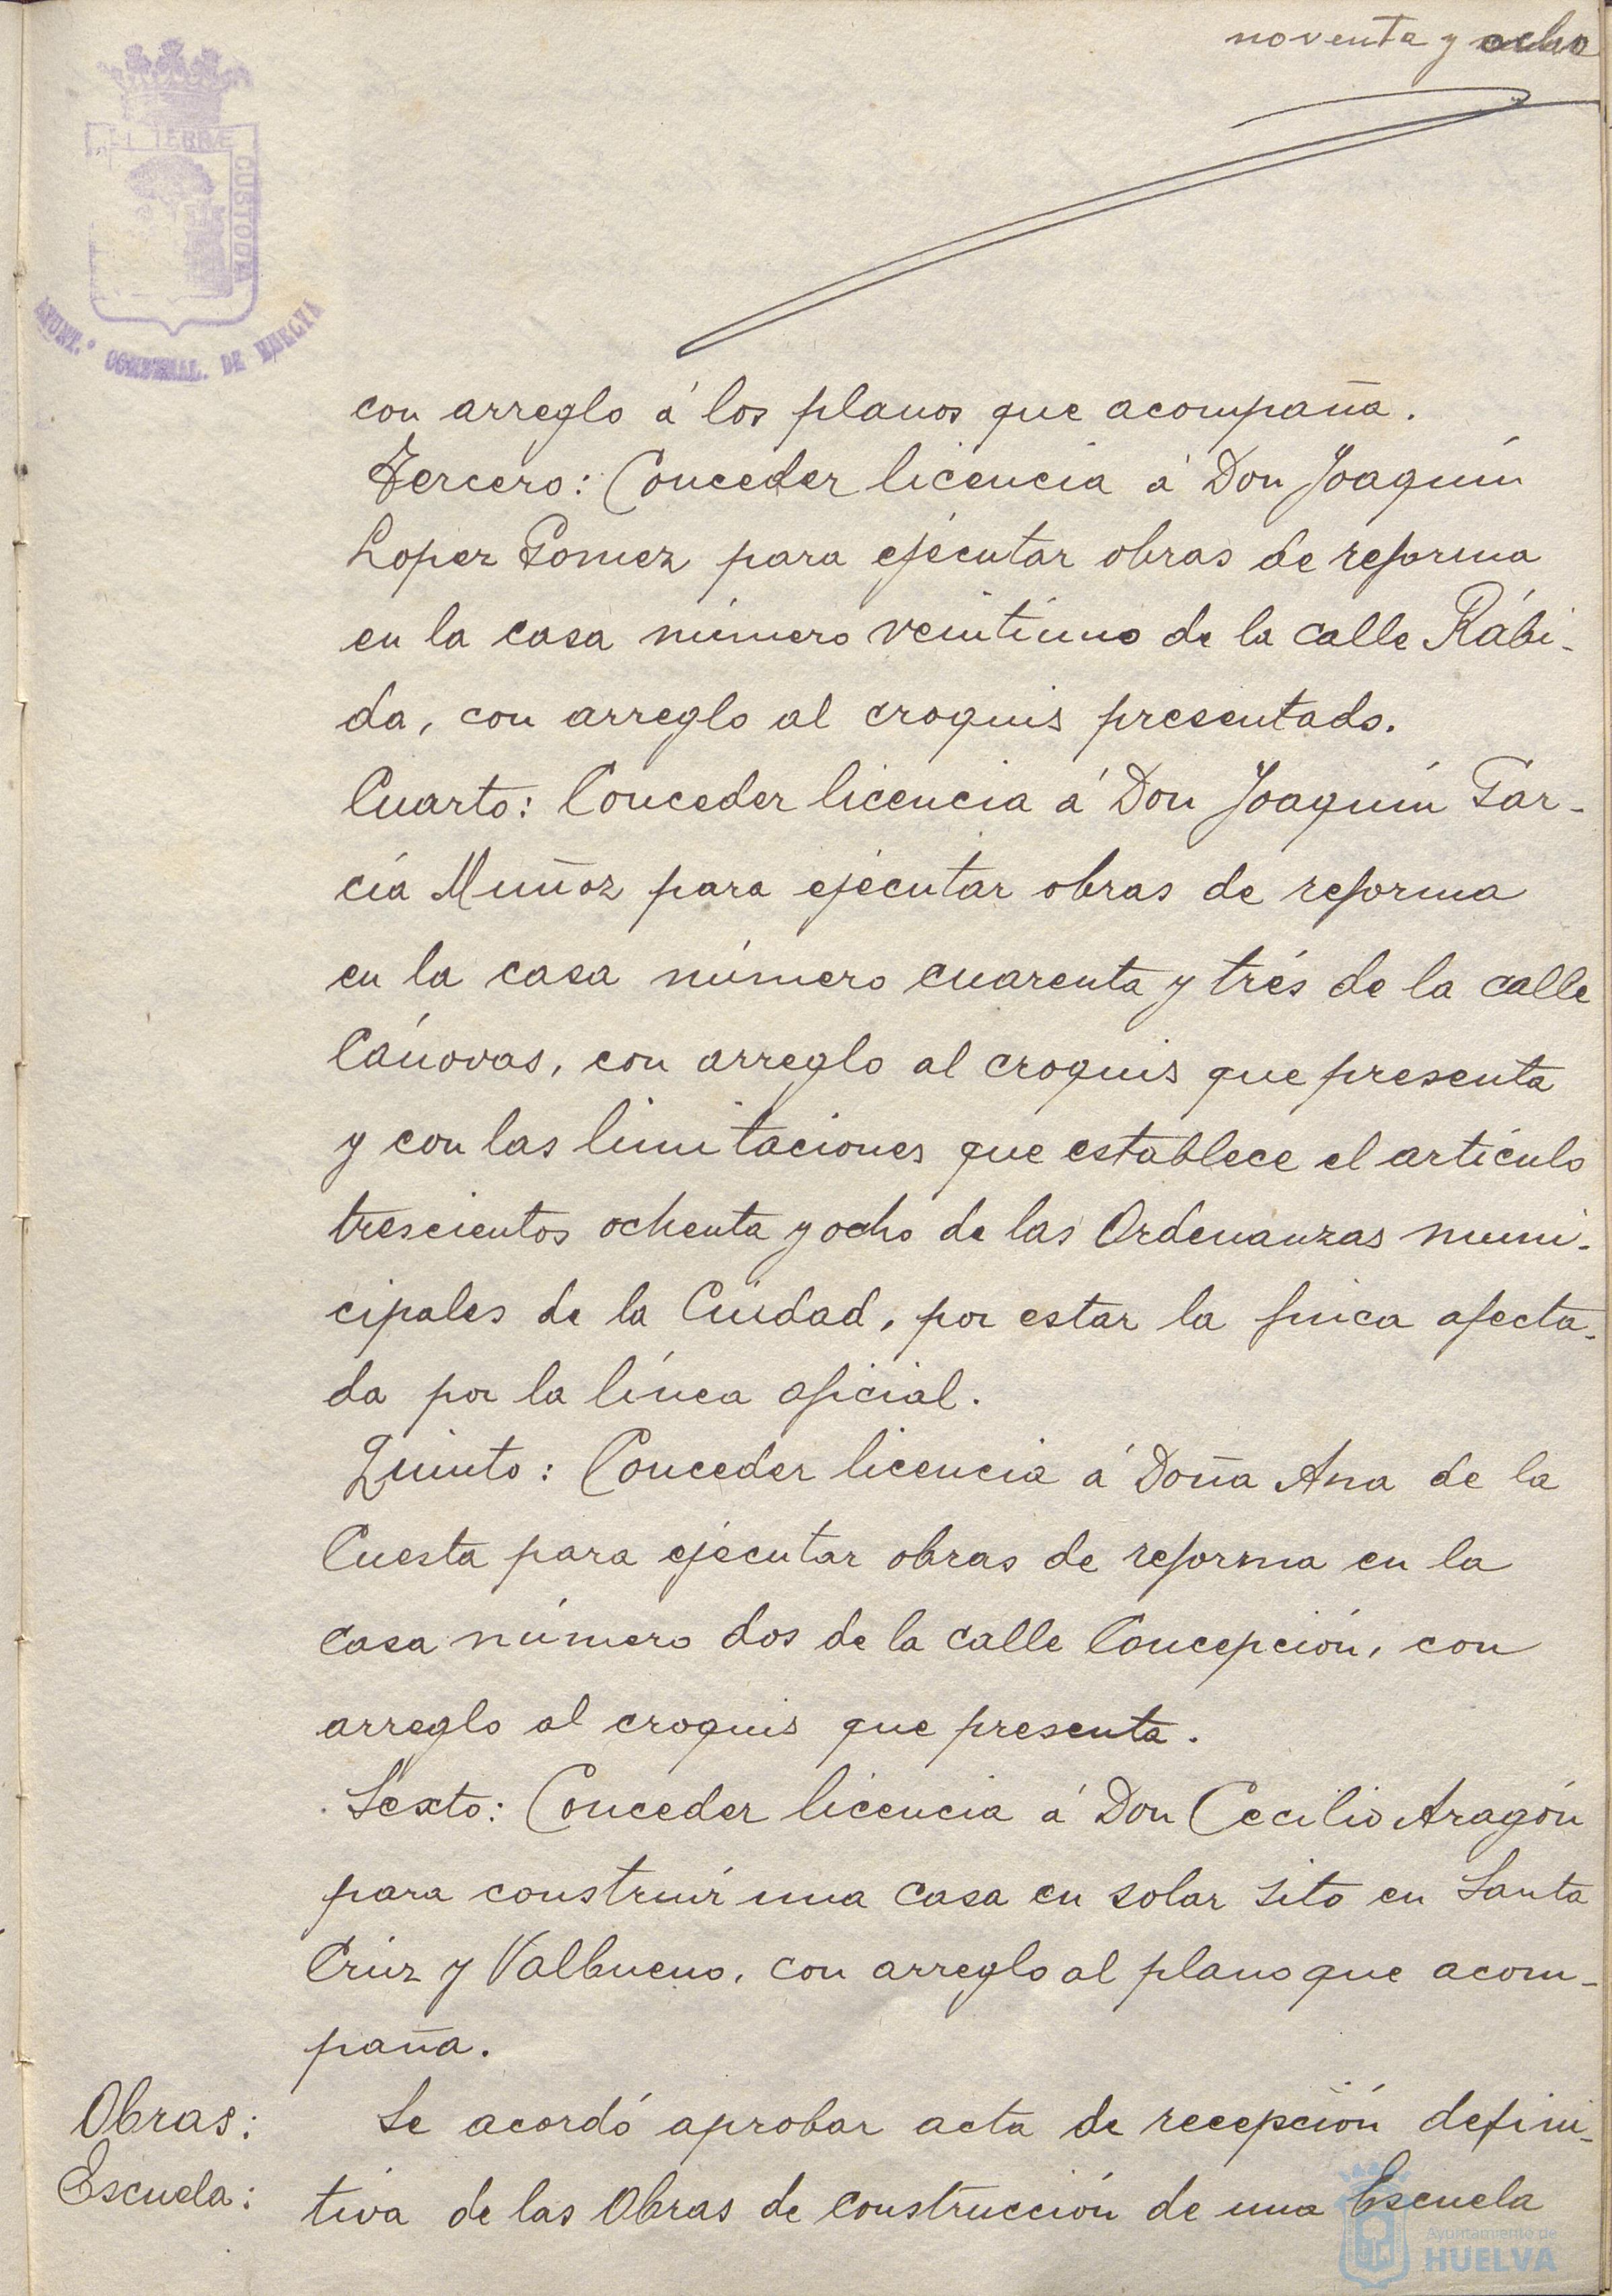 noventa y ocho
TERRÆ
CUSTODIA
AYUNT.º CONSTNAL. DE HUELVA
con arreglo á los planos que acompaña.
Tercero: Conceder licencia á Don Joaquín
Lopez Gomez para ejecutar obras de reforma
en la casa número veintiuno de la calle Rábi-
da, con arreglo al croquis presentado.
Cuarto: Conceder licencia á Don Joaquín Gar-
cía Muñoz para ejecutar obras de reforma
en la casa número cuarenta y trés de la calle
Cánovas, con arreglo al croquis que presenta
y con las limitaciones que establece el artículo
trescientos ochenta y ocho de las Ordenanzas muni-
cipales de la Ciudad, por estar la finca afecta-
da por la línea oficial.
Quinto: Conceder licencia á Doña Ana de la
Cuesta para ejecutar obras de reforma en la
casa número dos de la calle Concepción, con
arreglo al croquis que presenta.
Sexto: Conceder licencia á Don Cecilio Aragón
para construir una casa en solar sito en Santa
Cruz y Valbueno, con arreglo al plano que acom-
paña.
Obras:
Escuela:
Se acordó aprobar acta de recepción defini-
tiva de las Obras de construcción de una Escuela
Ayuntamiento de
HUELVA